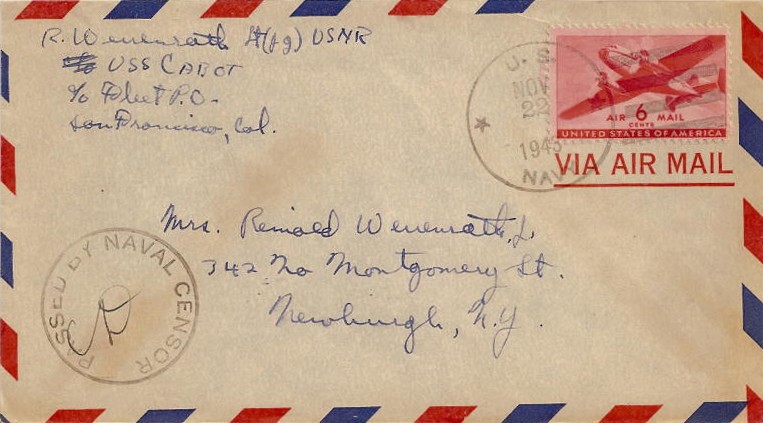 R. Werrenrath Lt(jg) USNR
USS CABOT
c/o Fleet P.O.
San Francisco, Cal.
U.S.
NOV
22
1943
NAVY
AIR 6 MAIL
CENTS
UNITED STATES OF AMERICA
VIA AIR MAIL
Mrs. Reinald Werrenrath, Jr.
342 No Montgomery St.
Newburgh, N.Y.
PASSED BY NAVAL CENSOR